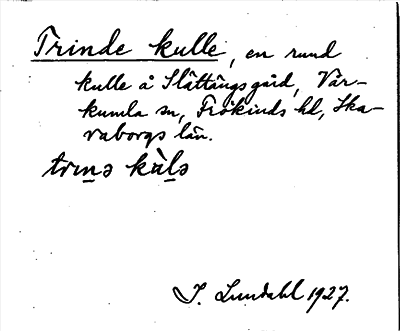 Trinde kulle, en rund
kulle å Slättängsgård, Vår-
kumla sn, Frökinds hd, Ska-
raborgs län.
trınə kùlə
J. Lundahl 1927.